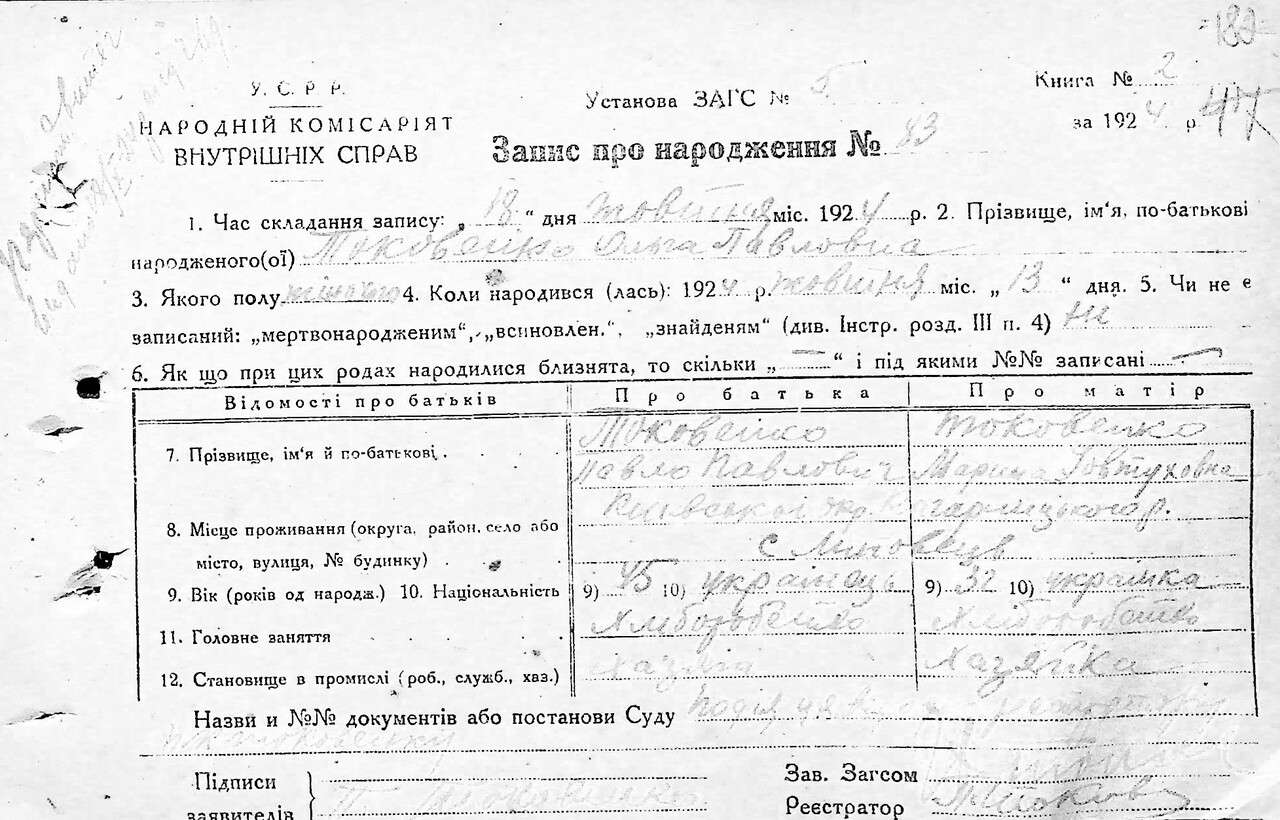 182
У. С. Р. Р.
НАРОДНІЙ КОМІСАРІЯТ
ВНУТРІШНІХ СПРАВ
Установа ЗАГС № 5
Книга № 2
за 1924 р. 47
Запис про народження № 83
1. Час складання запису: „ 18 “ дня жовтня міс. 1924 р. 2. Прізвище, ім‘я, по-батькові
народженого(ої) Токовенко Ольга Павловна
3. Якого полу жіночого 4. Коли народився (лась): 1924 р. жовтня міс. „ 13 “ дня. 5. Чи не є
записаний: „мертвонародженим“, „всиновлен.“, „знайденям“ (див. Інстр. розд. III п. 4) Ні
6. Як що при цих родах народилися близнята, то скільки „ — “ і під якими №№ записані —
Відомості про батьків Про батька Про матір
7. Прізвище, ім‘я й по-батькові. Токовенко Токовенко
Павло Павлович Марина Явтуховна
8. Місце проживання (округа, район, село або Київської окр. р.
місто, вулиця, № будинку) с
9. Вік (років од народж.) 10. Національність 9) 45 10) українець 9) 32 10) українка
11. Головне заняття Хліборобство Хліборобство
12. Становище в промислі (роб., служб., хвз.) Хазяїн Хазяйка
Назви и №№ документів або постанови Суду
Підписи
заявителів П. Токовенко
Зав. Загсом
Реєстратор